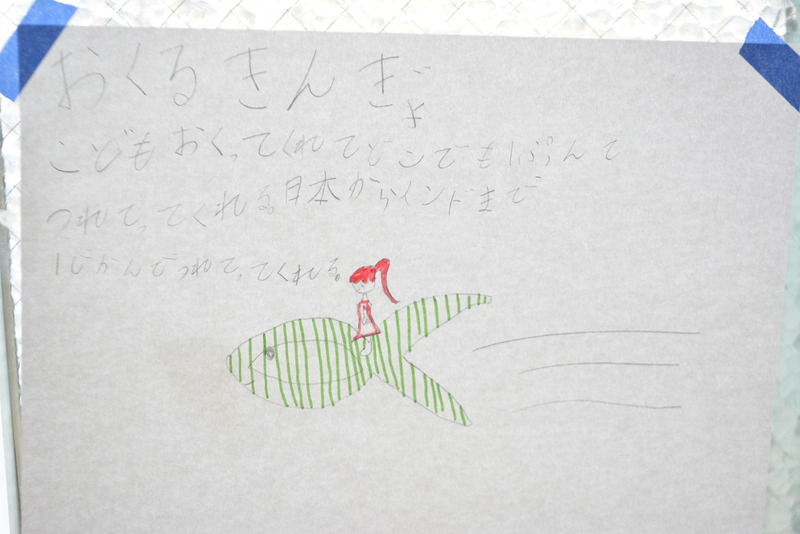 おくるきんぎょ
こどもおくってくれてどこでも1ぷんで
つれてってくれる。日本からインドまで
1じかんでつれてってくれる。